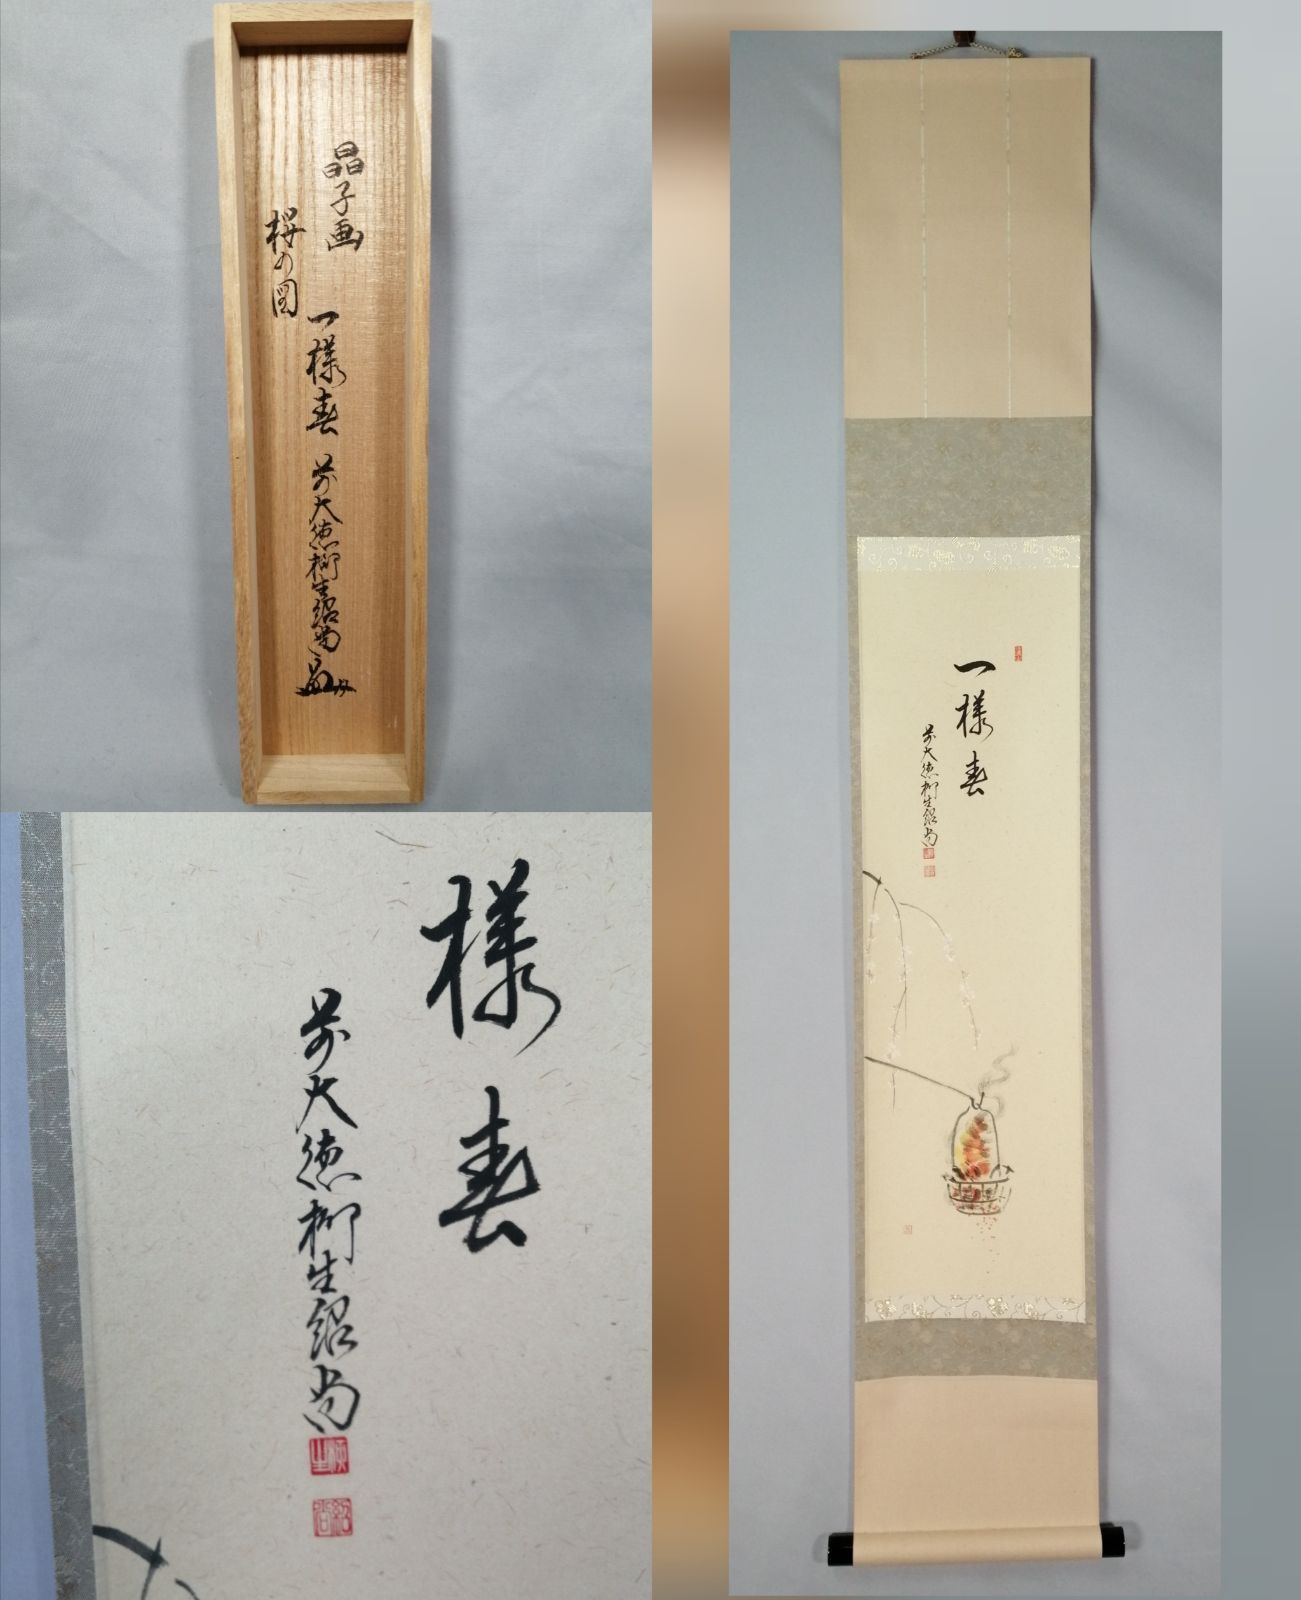 晶子画
桜の図
一様春
前大徳柳生紹尚
一様春
前大徳柳生紹尚
様春
前大徳柳生紹尚
柳生
紹尚